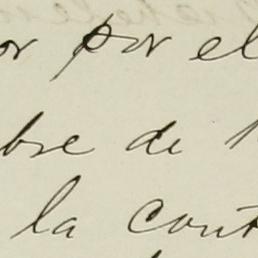 or por el
bre de
la cont